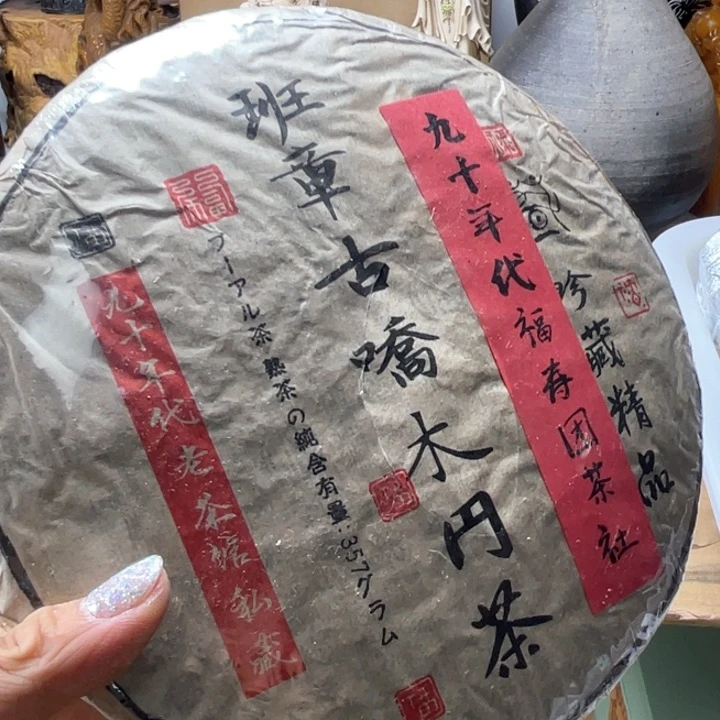 珍藏精品
九十年代福寿団茶社
班章古嘺木円茶
プーアル茶 熟茶の純含有量:357グラム
九十年代老茶館私蔵
福